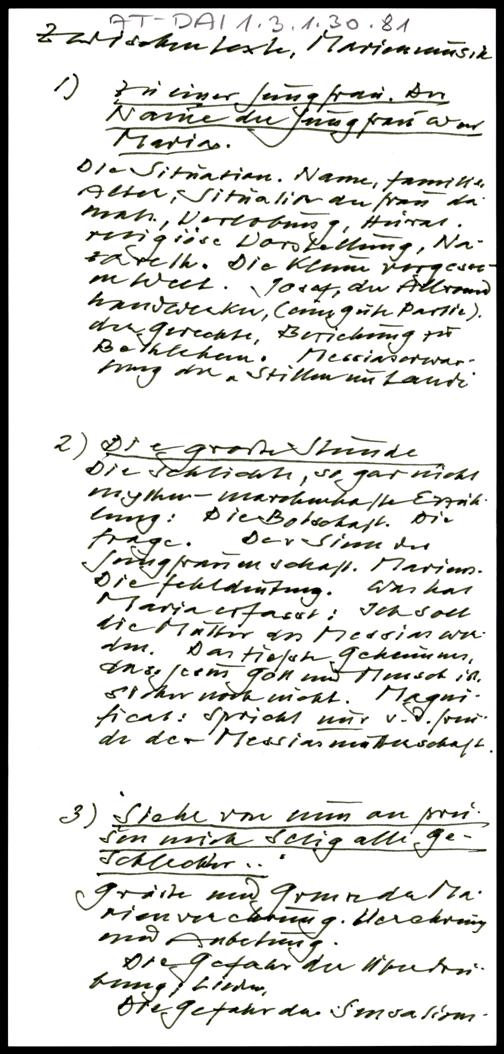 AT-DAI 1.3.1.30.81
Zwischentexte, Marienmusik
1) Zu einer Jungfrau. Der
Name der Jungfrau war
Maria.
Die Situation. Name, Familie,
Alter, Situation der Frau da-
mals, Verlobung, Heirat.
religiöse Vorstellung, Na-
zareth. Die kleine vergesse-
ne Welt. Josef, der Allround
handwerker, (eine gute Partie).
der Gerechte, Beziehung zu
Bethlehem. Messiaserwar-
tung der „Stillen im Lande
2) Die große Stunde
Die schlichte, so gar nicht
mythen-märchenhafte Erzäh-
lung: Die Botschaft. Die
Frage. Der Sinn der
Jungfrauenschaft. Mariens.
Die Fehldeutung. Was hat
Maria erfasst: Ich soll
die Mutter des Messias wer-
den. Das tiefste Geheimnis,
dass Jesus Gott und Mensch ist,
sicher noch nicht. Magni-
ficat: spricht nur v. d. Freu-
de der Messiasmutterschaft.
3) Siehe von nun an prei-
sen mich selig alle Ge-
schlechter..."
Größe und Grenze der Ma-
rienverehrung. Verehrung
und Anbetung.
Die Gefahr der Übertrei-
bung: Lieder,
Die Gefahr der Sensations-